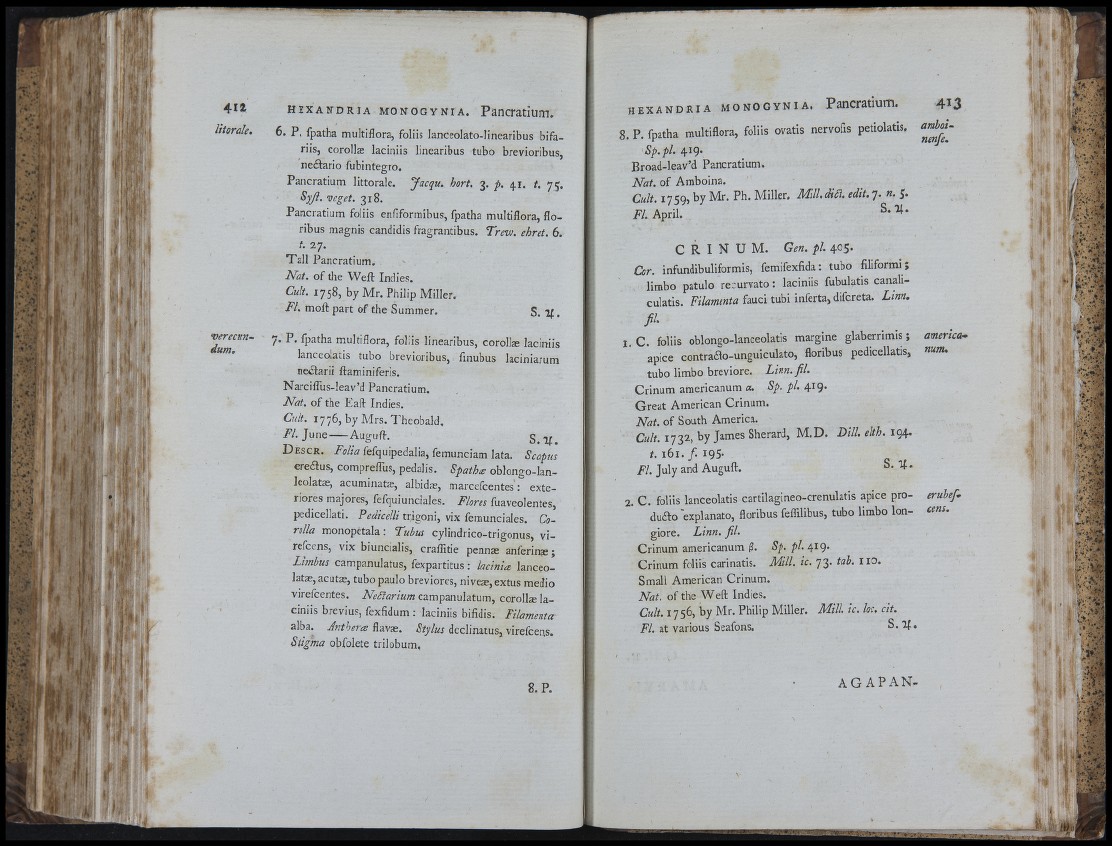 412 HEXANDRIA MONOGYNIA. Pancratium.
litorale. 6. P. ſpatha multiflora, foliis lanceolato-linearibus bifa-
riis, corollæ laciniis linearibus tubo brevioribus,
nectario ſubintegro.
Pancratium littorale. Jacqu. hort. 3. p. 41. t. 75.
Syſt. veget. 318.
Pancratium foliis enſiformibus, ſpatha multiflora, flo-
ribus magnis candidis fragrantibus. Trew. ehret. 6.
t. 27.
Tall Pancratium.
Nat. of the Weſt Indies.
Cult. 1758, by Mr. Philip Miller.
Fl. moſt part of the Summer. S. ♃.
verecun-
dum. 7. P. ſpatha multiflora, foliis linearibus, corollæ laciniis
lanceolatis tubo brevioribus, ſinubus laciniarum
nectarii ſtaminiferis.
Narciſſus-leav'd Pancratium.
Nat. of the Eaſt Indies.
Cult. 1776, by Mrs. Theobald.
Fl. June — Auguſt. S. ♃.
Descr. Folia ſeſquipedalia, ſemunciam lata. Scapus
erectus, compreſſus, pedalis. Spathæ oblongo-lan-
leolatæ, acuminatæ, albidæ, marceſcentes: exte-
riores majores, ſeſquiunciales. Flores ſuaveolentes,
pedicellati. Pedicelli trigoni, vix ſemunciales. Co-
rolla monopetala: Tubus cylindrico-trigonus, vi-
reſcens, vix biuncialis, craſſitie pennæ anſerinæ;
Limbus campanulatus, ſexpartitus: laciniæ lanceo-
latæ, acutæ, tubo paulo breviores, niveæ, extus medio
vireſcentes. Nectarium campanulatum, corollæ la-
ciniis brevius, ſexfidum: laciniis bifidis. Filamenta
alba. Antheræ flavæ. Stylus declinatus, vireſcens.
Stigma obſolete trilobum.
8. P.
HEXANDRIA MONOGYNIA. Pancratium. 413
8. P. ſpatha multiflora, foliis ovatis nervoſis petiolatis. amboi-
nenſe.
Sp. pl. 419.
Broad-leav'd Pancratium.
Nat. of Amboina.
Cult. 1759, by Mr. Ph. Miller. Mill. dict. edit. 7. n. 5.
Fl. April. S. ♃.
CRINUM. Gen. pl. 405.
Cor. infundibuliformis, ſemiſexfida: tubo filiformi;
limbo patulo recurvato: laciniis ſubulatis canali-
culatis. Filamenta fauci tubi inſerta, diſcreta. Linn.
fil.
1. C. foliis oblongo-lanceolatis margine glaberrimis; america-
num.
apice contracto-unguiculato, floribus pedicellatis,
tubo limbo breviore. Linn. fil.
Crinum americanum α. Sp. pl. 419.
Great American Crinum.
Nat. of South America.
Cult. 1732, by James Sherard, M.D. Dill. elth. 194.
t. 161. f. 195.
Fl. July and Auguſt. S. ♃.
2. C. foliis lanceolatis cartilagineo-crenulatis apice pro- erubeſ-
cens.
ducto explanato, floribus ſeſſilibus, tubo limbo lon-
giore. Linn. fil.
Crinum americanum β. Sp. pl. 419.
Crinum foliis carinatis. Mill. ic. 73. tab. 110.
Small American Crinum.
Nat. of the Weſt Indies.
Cult. 1756, by Mr. Philip Miller. Mill. ic. loc. cit.
Fl. at various Seaſons. S. ♃.
AGAPAN-